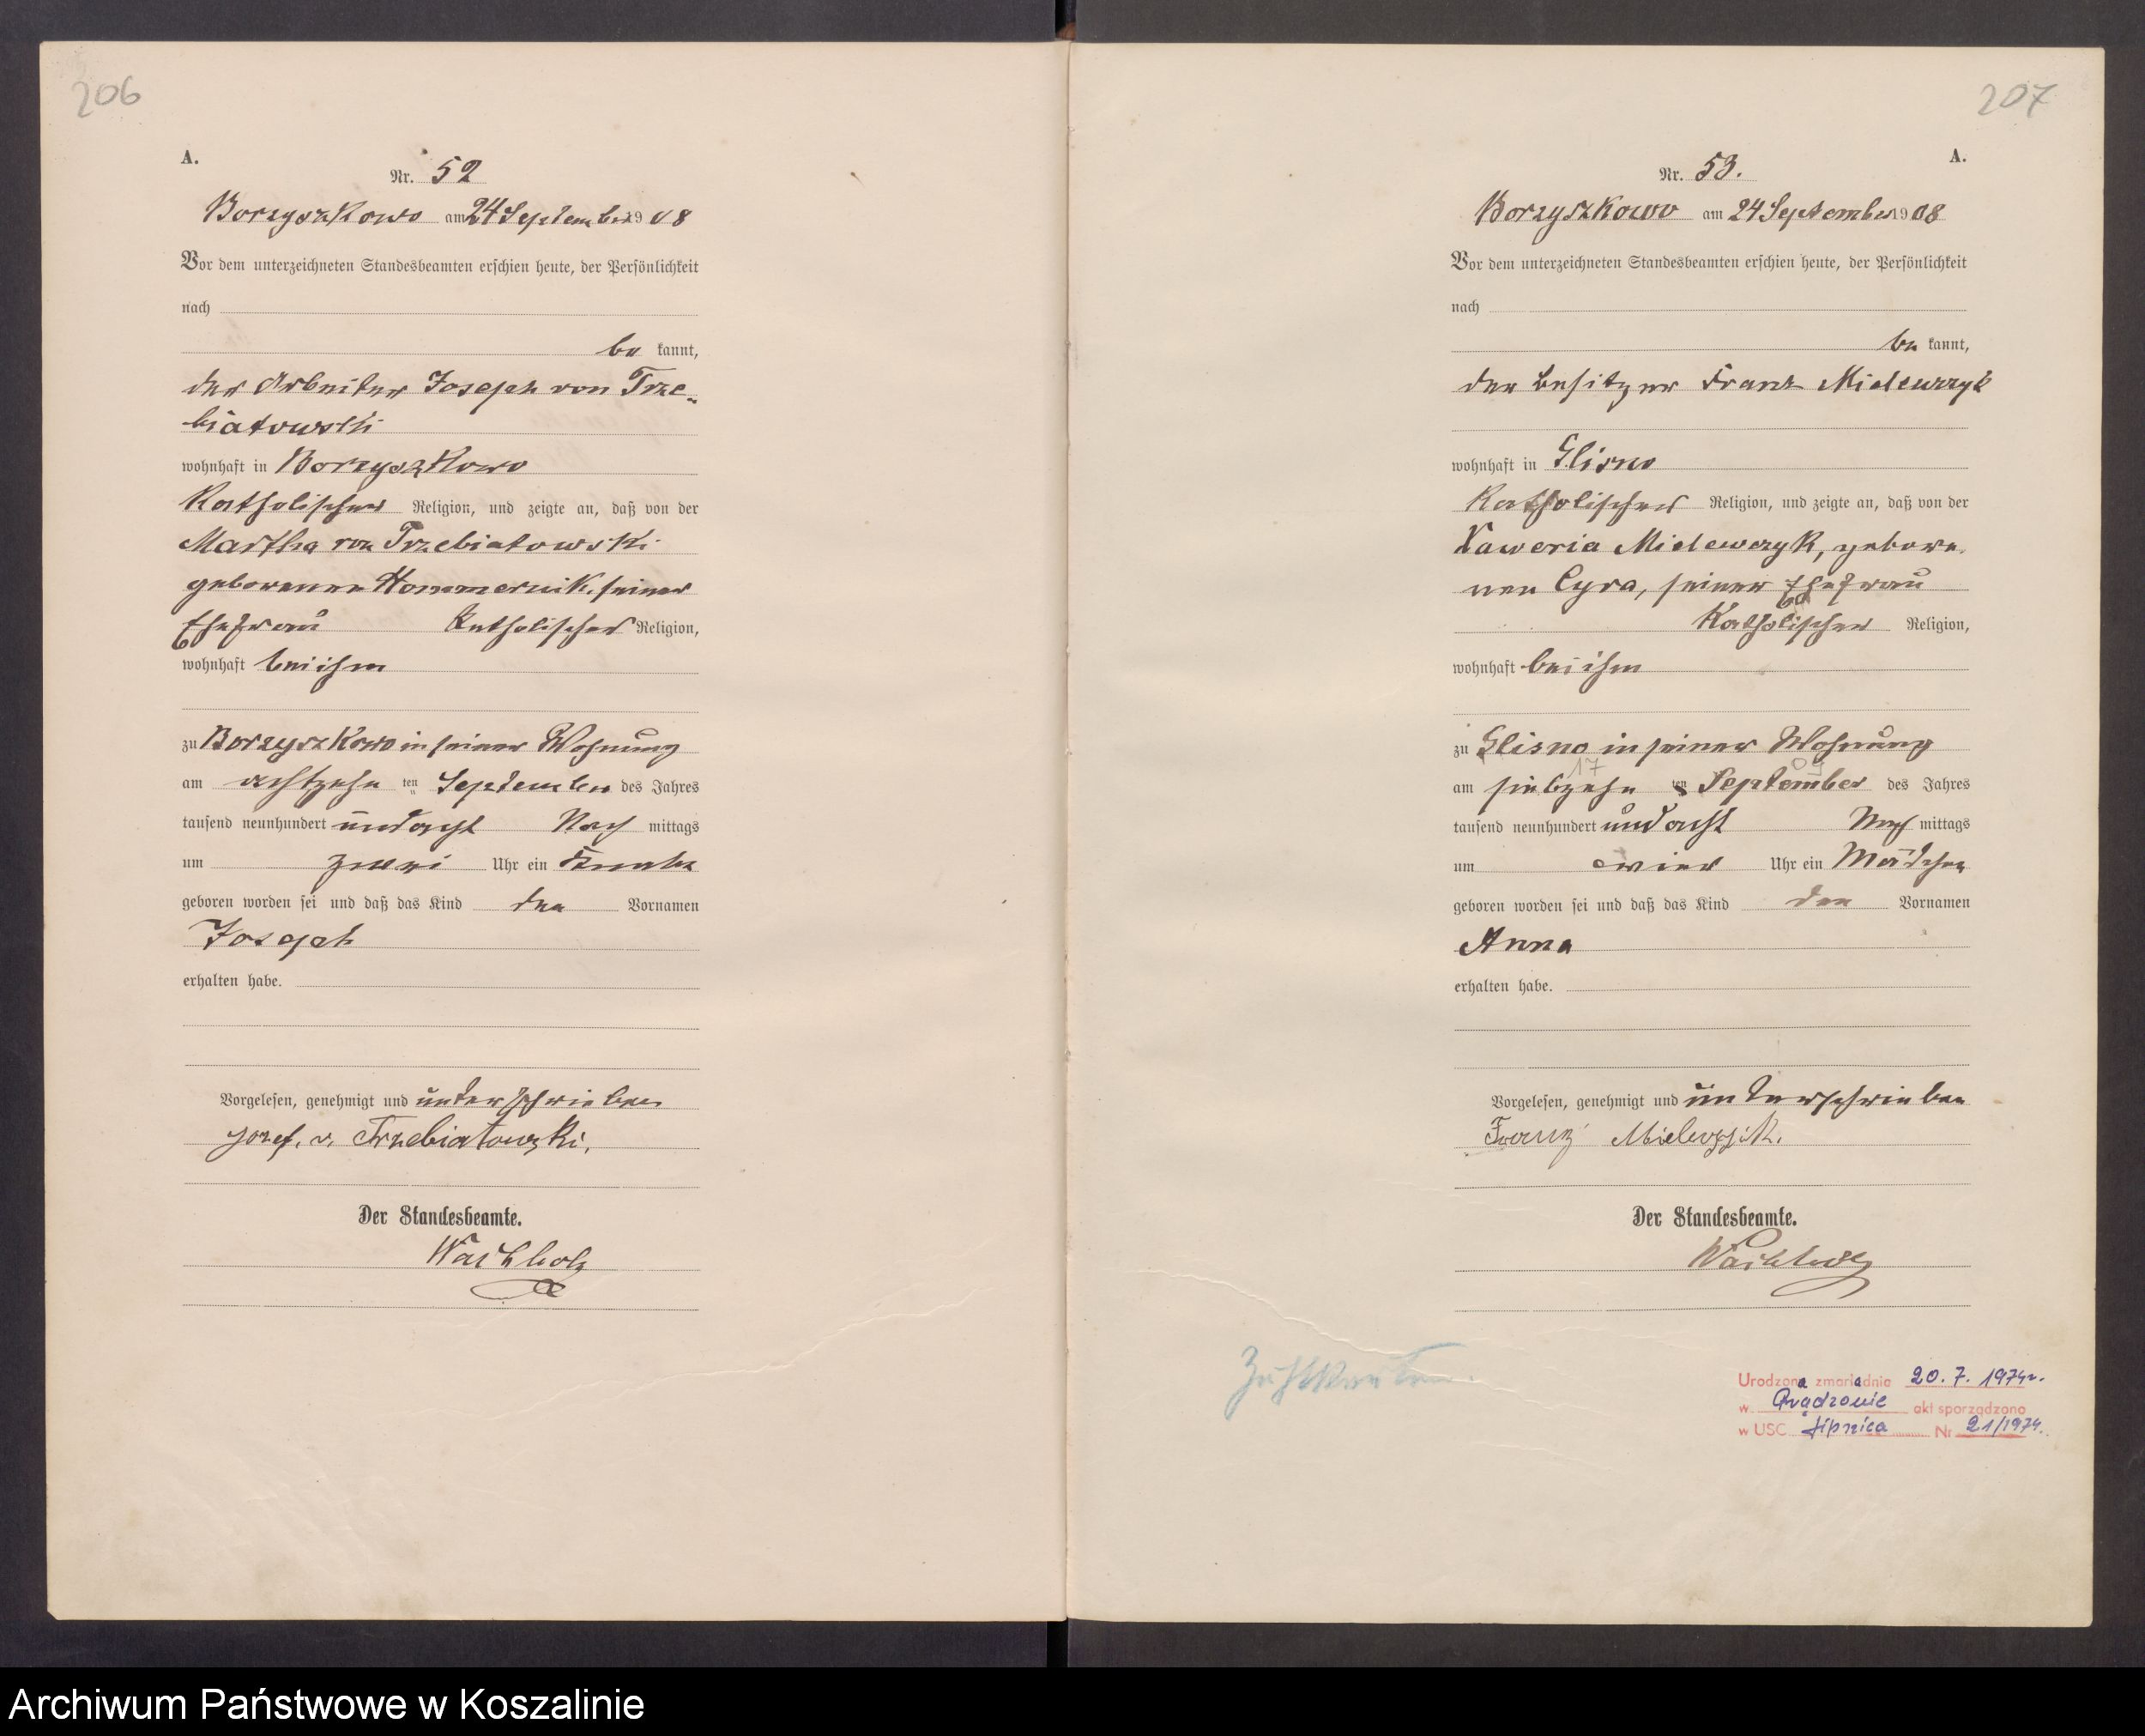 206
A.
Nr. 52
Borzyszkowo am 24 September 1908
Vor dem unterzeichneten Standesbeamten erschien heute, der Persönlichkeit
nach
be kannt,
der Arbeiter Joseph von Trze-
biatowski
wohnhaft in Borzyszkowo
Katholischer Religion, und zeigte an, daß von der
Martha von Trzebiatowski
geborenen seiner
Ehefrau Katholischer Religion,
wohnhaft bei ihm
zu Borzyszkowo in seiner Wohnung
am achtzehn ten September des Jahres
tausend neunhundert und acht Nach mittags
um zwei Uhr ein Knabe
geboren worden sei und daß das Kind den Vornamen
Joseph
erhalten habe.
Vorgelesen, genehmigt und unterschrieben
Josef. v. Trzebiatowski.
Der Standesbeamte.
Wachholz
207
A.
Nr. 53.
Borzyszkowo am 24 September 1908
Vor dem unterzeichneten Standesbeamten erschien heute, der Persönlichkeit
nach
be kannt,
der Besitzer Franz Mielewczyk
wohnhaft in Glisno
Katholischer Religion, und zeigte an, daß von der
Xaweria Mielewczyk, gebore-
nen Cyra, seiner Ehefrau
Katholischer Religion,
wohnhaft bei ihm
zu Glisno in seiner Wohnung
17 09
am siebzehn ten September des Jahres
tausend neunhundert und acht Nach mittags
um vier Uhr ein Mädchen
geboren worden sei und daß das Kind den Vornamen
Anna
erhalten habe.
Vorgelesen, genehmigt und unterschrieben
Franz
Der Standesbeamte.
Wachholz
Urodzona zmarła dnia 20. 7. 1974r.
w Prądzonie akt sporządzono
w USC Lipnica Nr 21/1974.
Archiwum Państwowe w Koszalinie